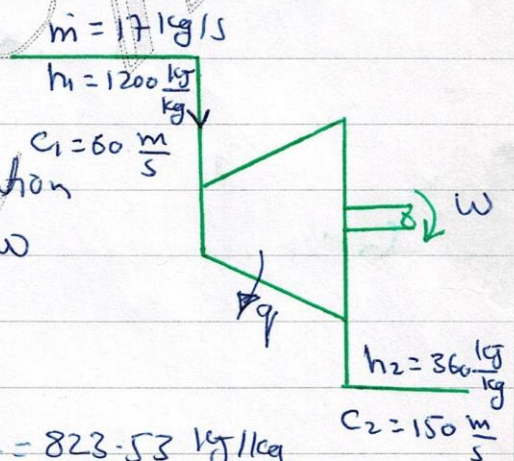 ṁ = 17 kg/s
h₁ = 1200 kJ/kg
C₁ = 60 m/s
tion
w
W
q
h₂ = 360 kJ/kg
C₂ = 150 m/s
= 823.53 kJ/kg